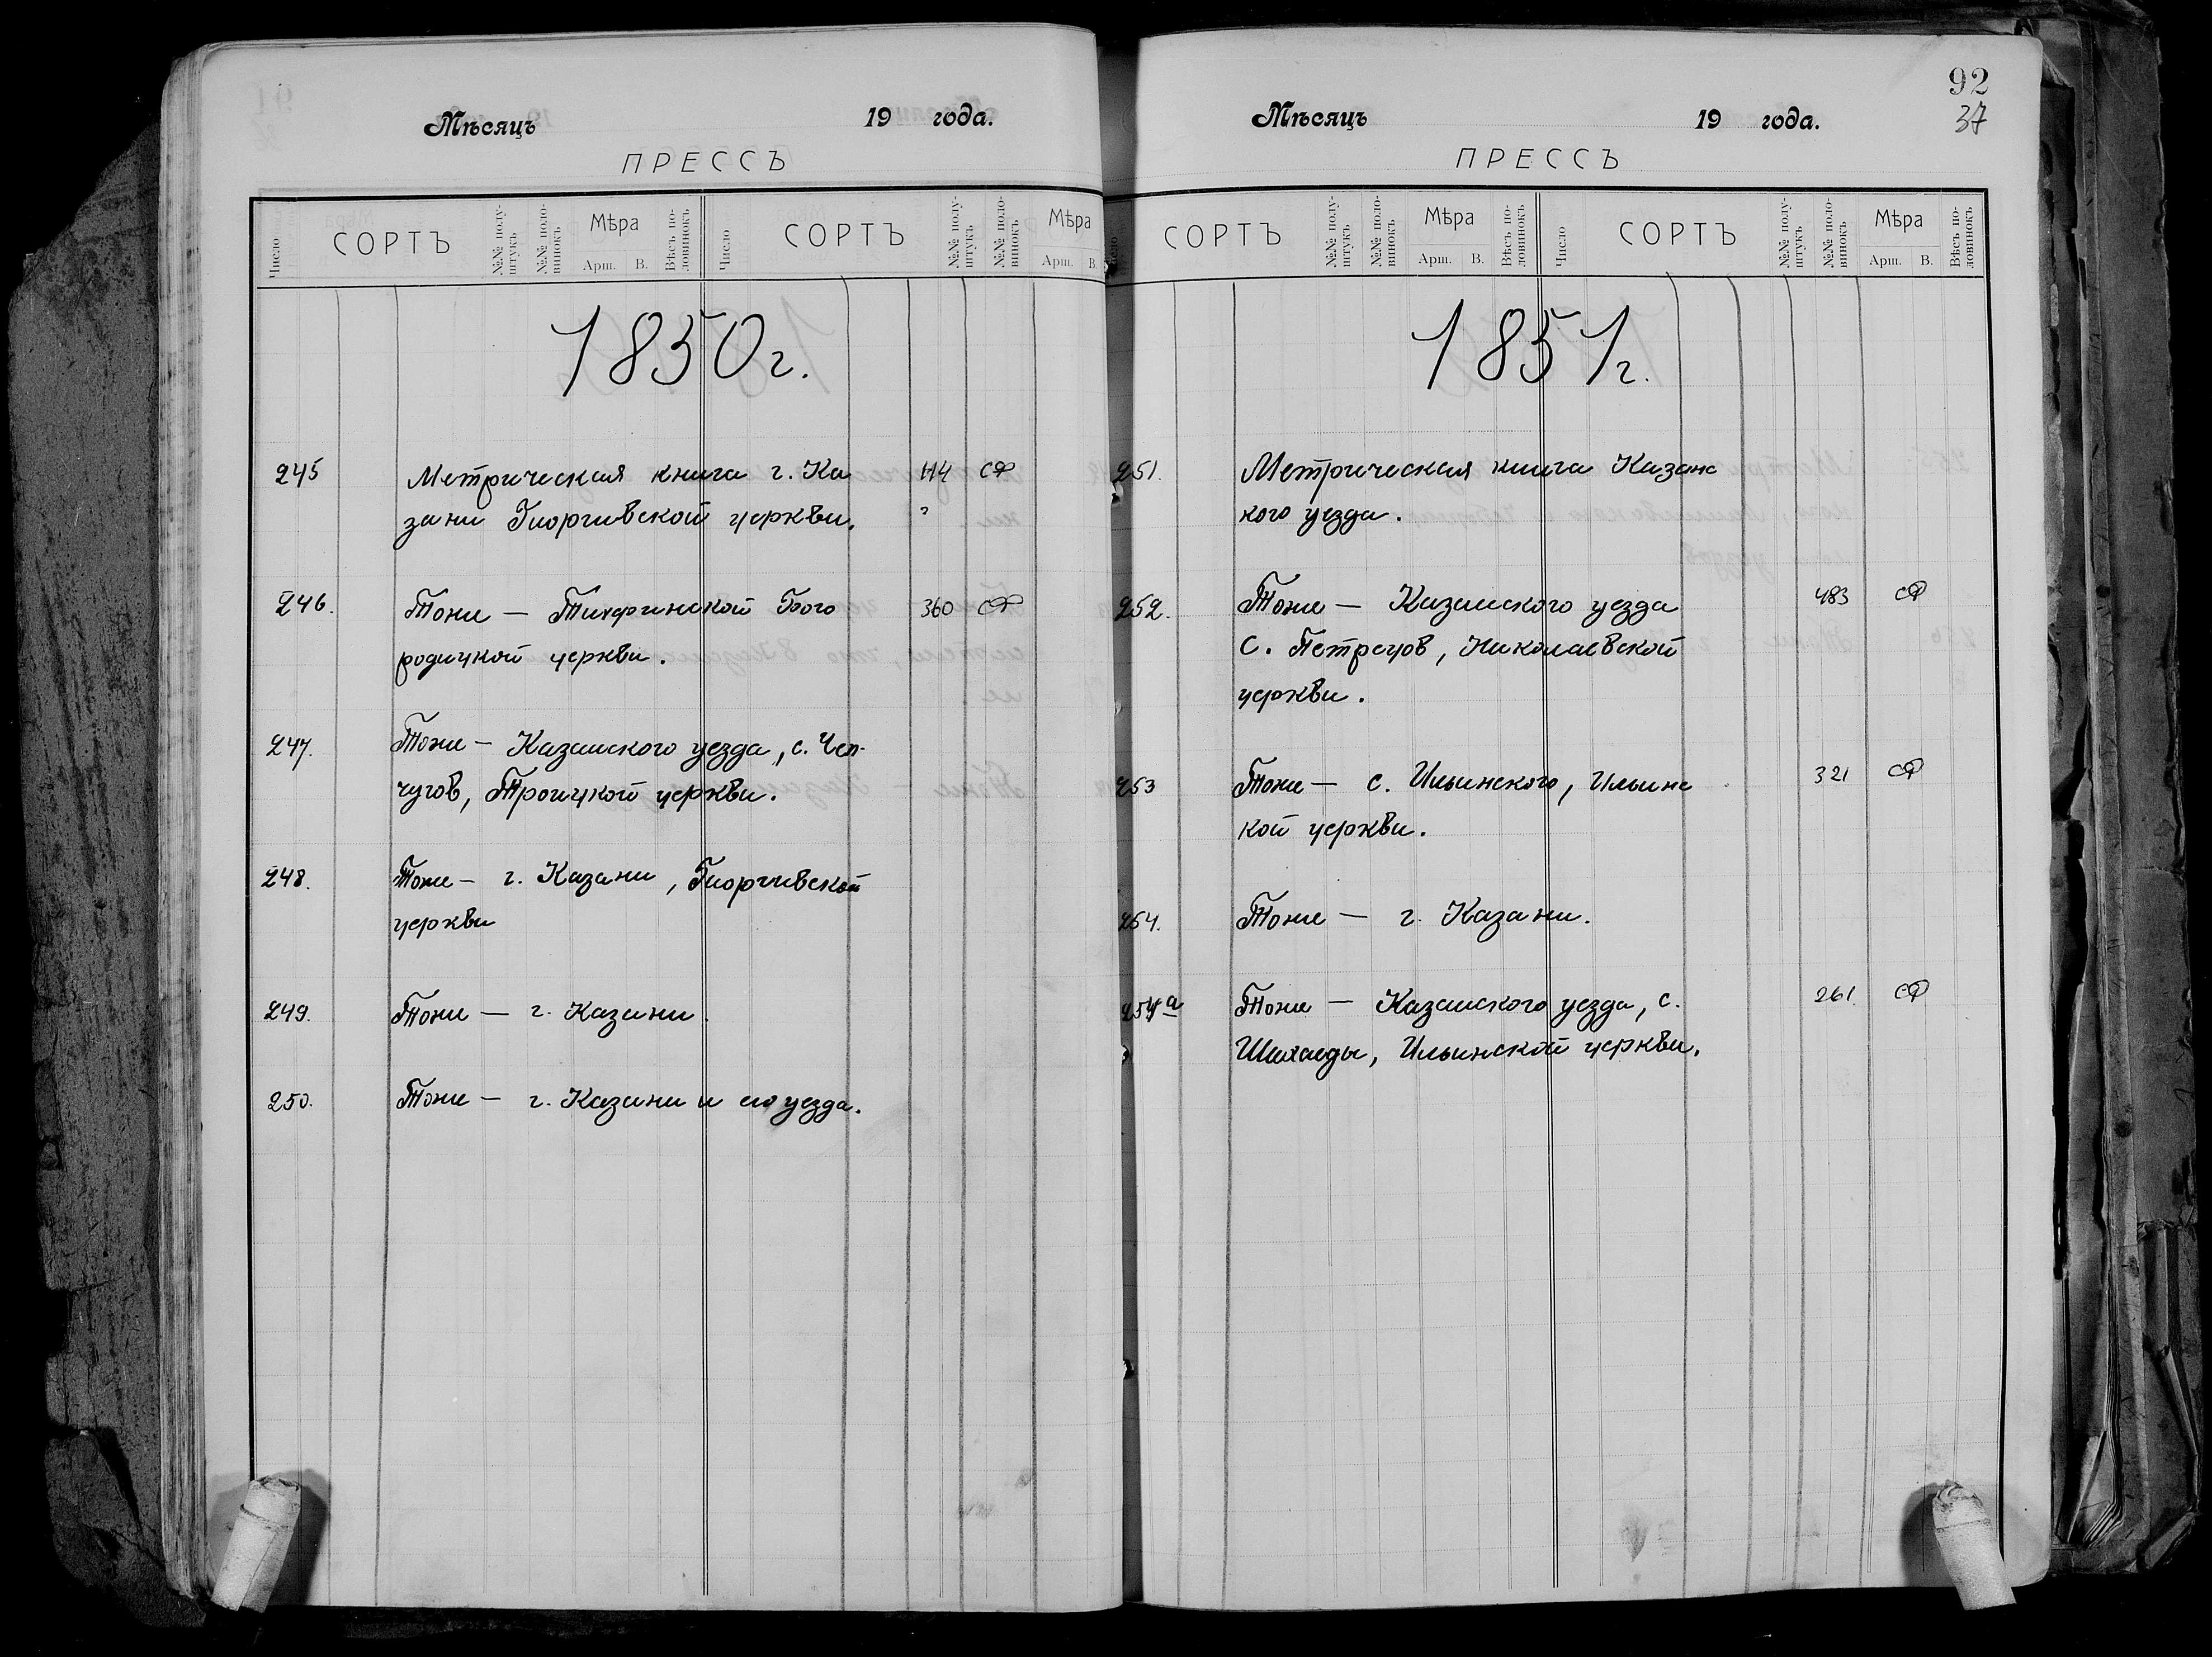 Мѣсяцъ 19 года.
ПРЕССЪ
Число СОРТЪ №№ полуштукъ №№ половинокъ Мѣра Арш. В. Вѣсъ половинокъ Число СОРТЪ №№ полуштукъ №№ половинокъ Мѣра Арш. В.
1850 г.
245 Метрическая книга г. Ка 114 СФ
зани Георгиевской церкви.
246. Тоже — Тихвинской Бого 360 СФ
родицкой церкви.
247. Тоже — Казанского уезда, с. Чеп-
чугов, Троицкой церкви.
248. Тоже — г. Казани, Георгиевской
церкви
249. Тоже — г. Казани.
250. Тоже — г. Казани и его уезда.
92
37
Мѣсяцъ 19 года.
ПРЕССЪ
Число СОРТЪ №№ полуштукъ №№ половинокъ Мѣра Арш. В. Вѣсъ половинокъ Число СОРТЪ №№ полуштукъ №№ половинокъ Мѣра Арш. В. Вѣсъ половинокъ
1851 г.
251. Метрическая книга Казанс
кого уезда.
252. Тоже — Казанского уезда 483 СФ
с. Петрецов, Николаевской
церкви.
253 Тоже — с. Ильинского, Ильинс 321 СФ
кой церкви.
254. Тоже — г. Казани.
254а Тоже — Казанского уезда, с. 261 СФ
Шихазды, Ильинской церкви.